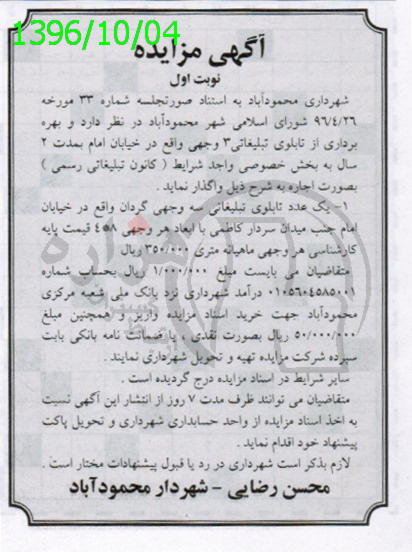 1396/10/04
آگهی مزایده
نوبت اول
شهرداری محمودآباد به استناد صورتجلسه شماره ۳۳ مورخه
۹۶/۴/۲۶ شورای اسلامی شهر محمودآباد در نظر دارد و بهره
برداری از تابلوی تبلیغاتی۳ وجهی واقع در خیابان امام بمدت ۲
سال به بخش خصوصی واجد شرایط ( کانون تبلیغاتی رسمی )
بصورت اجاره به شرح ذیل واگذار نماید .
۱- یک عدد تابلوی تبلیغاتی سه وجهی گردان واقع در خیابان
امام جنب میدان سردار کاظمی با ابعاد هر وجهی ۸*۴ قیمت پایه
کارشناسی هر وجهی ماهیانه متری ۳۵۰/۰۰۰ ریال
متقاضیان می بایست مبلغ ۱/۰۰۰/۰۰۰ ریال بحساب شماره
۰۱۰۵۶۰۴۵۸۵۰۰۱ درآمد شهرداری نزد بانک ملی شعبه مرکزی
محمودآباد جهت خرید اسناد مزایده واریز و همچنین مبلغ
۵۰/۰۰۰/۰۰۰ ریال بصورت نقدی ، یا ضمانت نامه بانکی بابت
سپرده شرکت مزایده تهیه و تحویل شهرداری نمایند .
سایر شرایط در اسناد مزایده درج گردیده است .
متقاضیان می توانند ظرف مدت ۷ روز از انتشار این آگهی نسبت
به اخذ اسناد مزایده از واحد حسابداری شهرداری و تحویل پاکت
پیشنهاد خود اقدام نماید .
لازم بذکر است شهرداری در رد یا قبول پیشنهادات مختار است .
محسن رضایی - شهردار محمودآباد